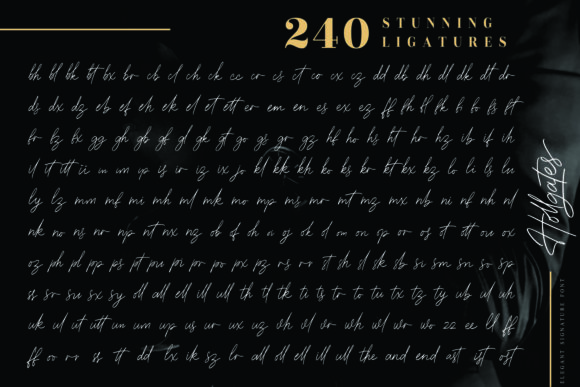 240 STUNNING
LIGATURES
bh bl bk bt bx br cb cl ch ck cc cr cs ct co cx cz dd db dh dl dk dt dr
ds dx dz eb ef eh ek el et ett er em en es ex ez ff fh fl fk fi fo fs ft
fr fz fx gg gh gb gf gl gk gt go gs gr gz hf ho hs ht hr hz ib if ih
il it itt ii in im ip is ir iz ix jo kl kk kh ko ks kr kt kx kz lo li ls lu
ly lz mm mf mi mh ml mk mo mp ms mr mt mz mx nb ni nf nh nl
nk no ns nr np nt nx nz ob of oh oi oj ok ol om on op or os ot ott ou ox
oz ph pl pp ps pt pu pi po pr po px pz rs ro st sh sl sk sb si sm sn so sp
ss sr su sx sy oll all ell ill ull th tl tk ti ts tr to tu tx tz ty ub ul uh
uk ul ut utt un um up us ur ux uz vh vl vr wh wl wr wo zz ee ll ff
ff oo rr ss tt dd tx ik sz lr all oll ell ill ull the and end ast ist ost
Hollgates
ELEGANT SIGNATURE FONT